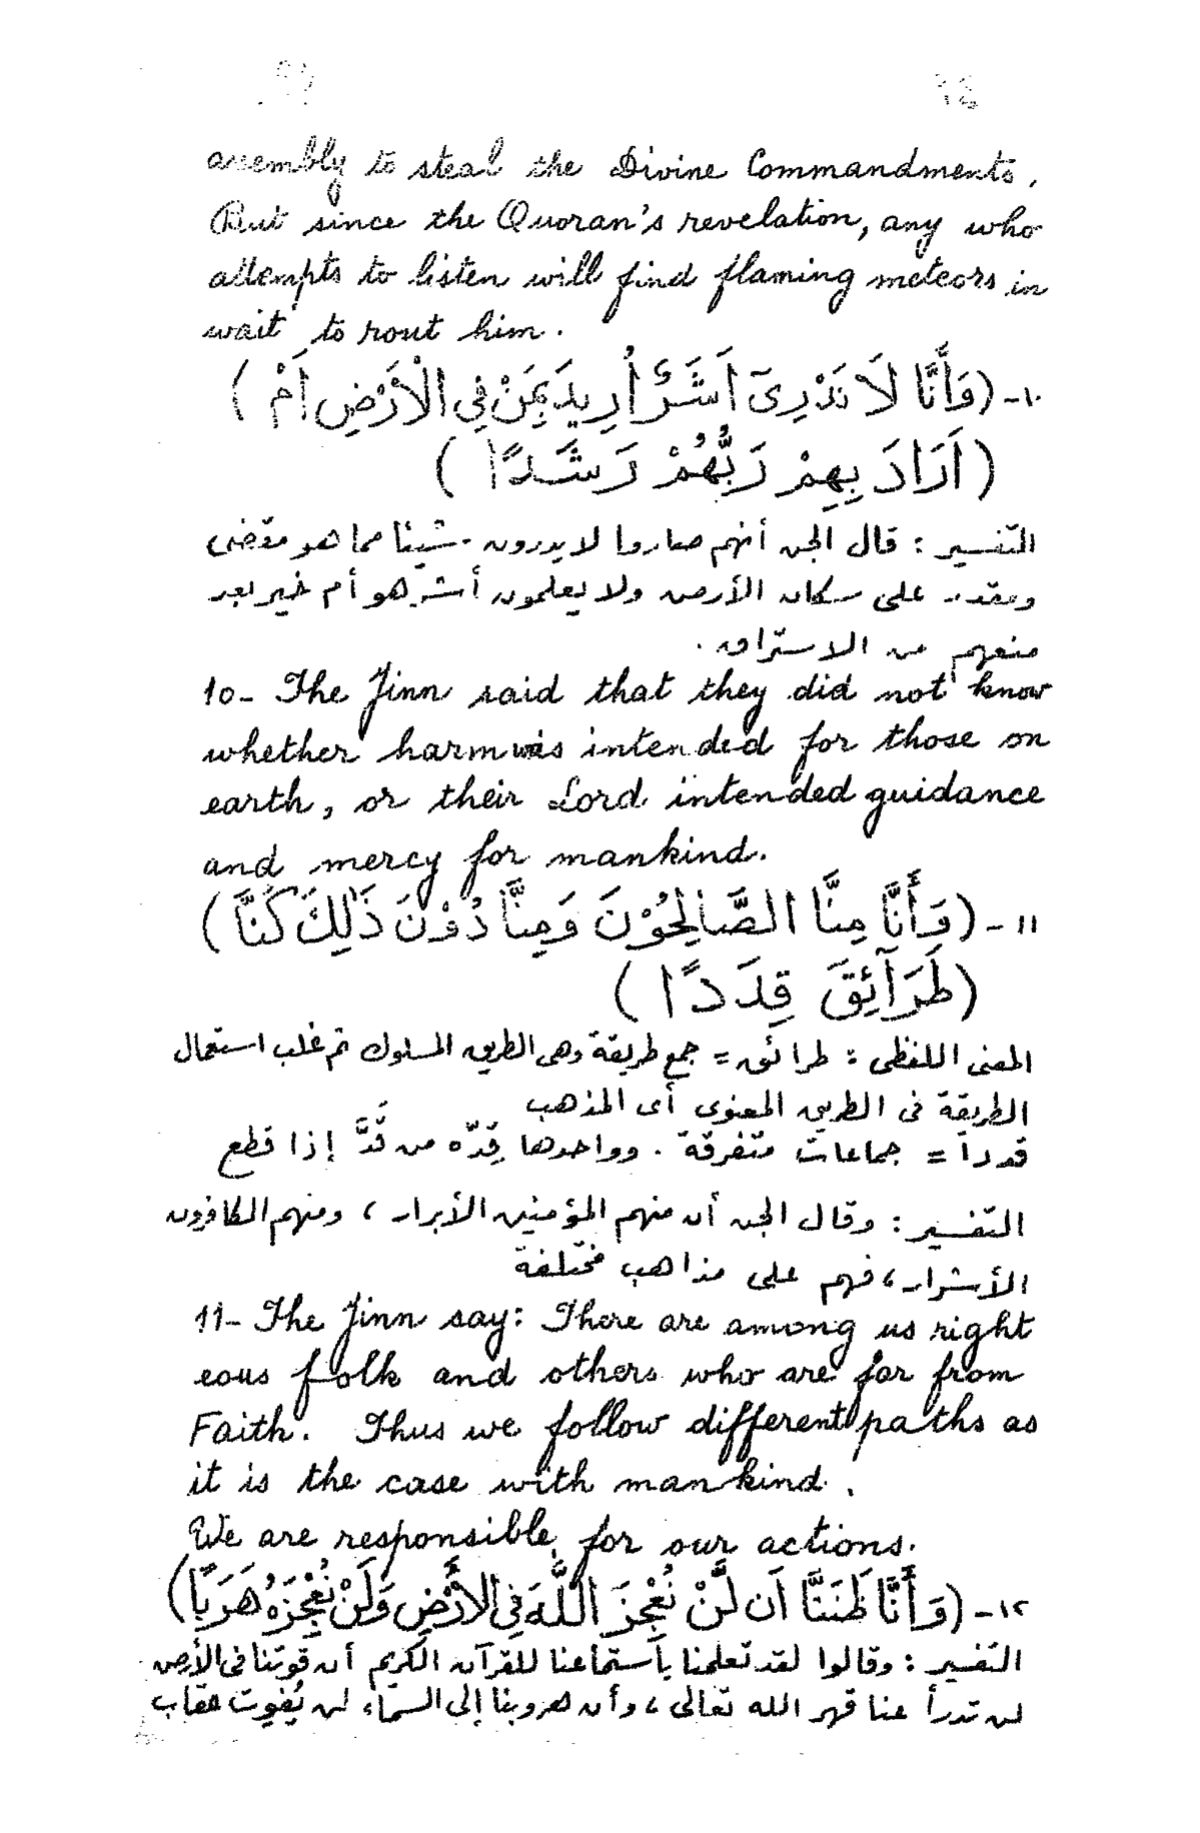 assembly to steal the Divine Commandments.
But since the Quoran's revelation, any who
attempts to listen will find flaming meteors in
wait to rout him.
١٠- (وَأَنَّا لَا نَدْرِىٓ اَشَرٌّ أُرِيدَ بِمَنْ فِي الْأَرْضِ اَمْ )
( اَرَادَ بِهِمْ رَبُّهُمْ رَشَدًا )
التفسير : قال الجن أنهم صاروا لا يدرون شيئا مما هو مقضى
ومقدر على سكان الأرض ولا يعلمون أشر هو أم خير بعد
منعهم من الاستراق .
10- The Jinn said that they did not know
whether harm was intended for those on
earth, or their Lord intended guidance
and mercy for mankind.
١١ - (وَأَنَّا مِنَّا الصَّالِحُوْنَ وَمِنَّا دُوْنَ ذَٰلِكَ كُنَّا )
(طَرَآئِقَ قِدَدًا )
المعنى اللفظى : طرائق = جمع طريقة وهى الطريق المسلوك ثم غلب استعمال
الطريقة فى الطريق المعنوى أى المذهب
قددا = جماعات متفرقة . وواحدها قِدّه من قَدَّ إذا قطع
التفسير : وقال الجن أن منهم المؤمنين الأبرار ، ومنهم الكافرون
الأشرار ، فهم على مذاهب مختلفة
11- The Jinn say: There are among us right
eous folk and others who are far from
Faith. Thus we follow different paths as
it is the case with mankind.
We are responsible for our actions.
١٢- (وَأَنَّا ظَنَنَّا اَن لَّنْ نُعْجِزَ اللَّهَ فِى الأَرْضِ وَلَنْ نُعْجِزَهُ هَرَبًا)
التفسير : وقالوا لقد تعلمنا بأستماعنا للقرآن الكريم أن قوتنا فى الأرض
لن تدرأ عنا قهر الله تعالى ، وأن هروبنا إلى السماء لن يُفوت عقاب